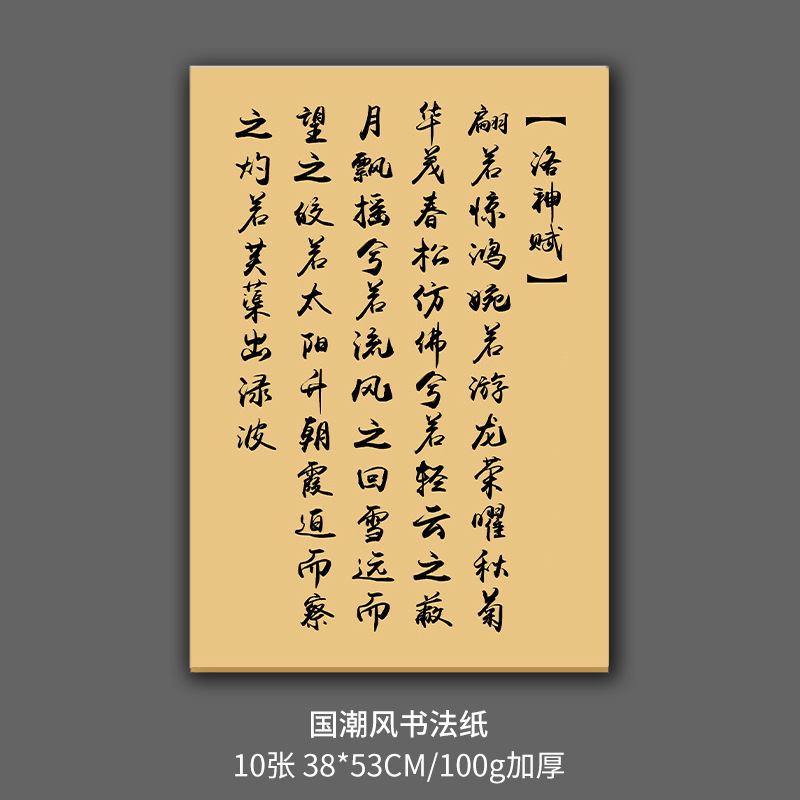 【洛神赋】
翩若惊鸿婉若游龙荣曜秋菊
华茂春松仿佛兮若轻云之蔽
月飘摇兮若流风之回雪远而
望之皎若太阳升朝霞迫而察
之灼若芙蕖出渌波
国潮风书法纸
10张 38*53CM/100g加厚